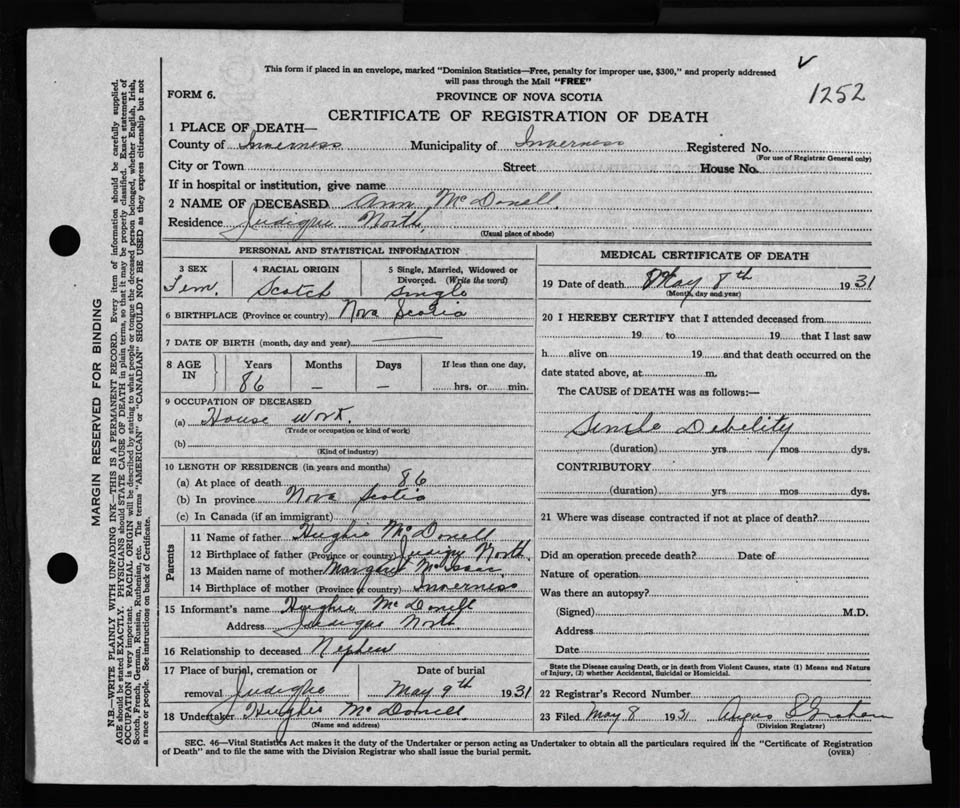 This form if placed in an envelope, marked "Dominion Statistics—Free, penalty for improper use, $300," and properly addressed
will pass through the Mail "FREE"
1252
FORM 6.
PROVINCE OF NOVA SCOTIA
CERTIFICATE OF REGISTRATION OF DEATH
1 PLACE OF DEATH—
County of Inverness Municipality of Inverness Registered No.
(For use of Registrar General only)
City or Town Street House No.
If in hospital or institution, give name
2 NAME OF DECEASED Ann McDonell
Residence Judique North,
(Usual place of abode)
PERSONAL AND STATISTICAL INFORMATION
3 SEX 4 RACIAL ORIGIN 5 Single, Married, Widowed or
Divorced. (Write the word)
Fem. Scotch Single
6 BIRTHPLACE (Province or country) Nova Scotia
7 DATE OF BIRTH (month, day and year) —
8 AGE IN Years Months Days If less than one day,
86 – – hrs. or min.
9 OCCUPATION OF DECEASED
(a) House work.
(Trade or occupation or kind of work)
(b)
(Kind of industry)
10 LENGTH OF RESIDENCE (in years and months)
(a) At place of death 86
(b) In province Nova Scotia
(c) In Canada (if an immigrant)
Parents
11 Name of father Hughie McDonell
12 Birthplace of father (Province or country) Judique North
13 Maiden name of mother Margaret McIsaac
14 Birthplace of mother (Province or country) Inverness
15 Informant's name Hughie McDonell
Address Judique North.
16 Relationship to deceased Nephew
17 Place of burial, cremation or Date of burial
removal Judique May 9th 1931
18 Undertaker Hughie McDonell
(Name and address)
MEDICAL CERTIFICATE OF DEATH
19 Date of death May 8th 1931
(Month, day and year)
20 I HEREBY CERTIFY that I attended deceased from
19 to 19 that I last saw
h alive on 19 and that death occurred on the
date stated above, at m.
The CAUSE of DEATH was as follows:—
Senile Debility
(duration) yrs. mos dys.
CONTRIBUTORY
(duration) yrs mos dys.
21 Where was disease contracted if not at place of death?
Did an operation precede death? Date of
Nature of operation
Was there an autopsy?
(Signed) M.D.
Address
Date
State the Disease causing Death, or in death from Violent Causes, state (1) Means and Nature
of Injury, (2) whether Accidental, Suicidal or Homicidal.
22 Registrar's Record Number
23 Filed May 8 1931 Angus
(Division Registrar)
SEC. 46—Vital Statistics Act makes it the duty of the Undertaker or person acting as Undertaker to obtain all the particulars required in the "Certificate of Registration
of Death" and to file the same with the Division Registrar who shall issue the burial permit.
(OVER)
MARGIN RESERVED FOR BINDING
N.B.—WRITE PLAINLY WITH UNFADING INK—THIS IS A PERMANENT RECORD. Every item of information should be carefully supplied.
AGE should be stated EXACTLY. PHYSICIANS should STATE CAUSE OF DEATH in plain terms, so that it may be properly classified. Exact statement of
OCCUPATION is very important. RACIAL ORIGIN will be described by stating to what people or tongue the deceased person belonged, whether English, Irish,
Scotch, French, German, Russian, Ruthenian, etc. The terms "AMERICAN" or "CANADIAN" SHOULD NOT BE USED as they express citizenship but not
a race or people. See instructions on back of Certificate.